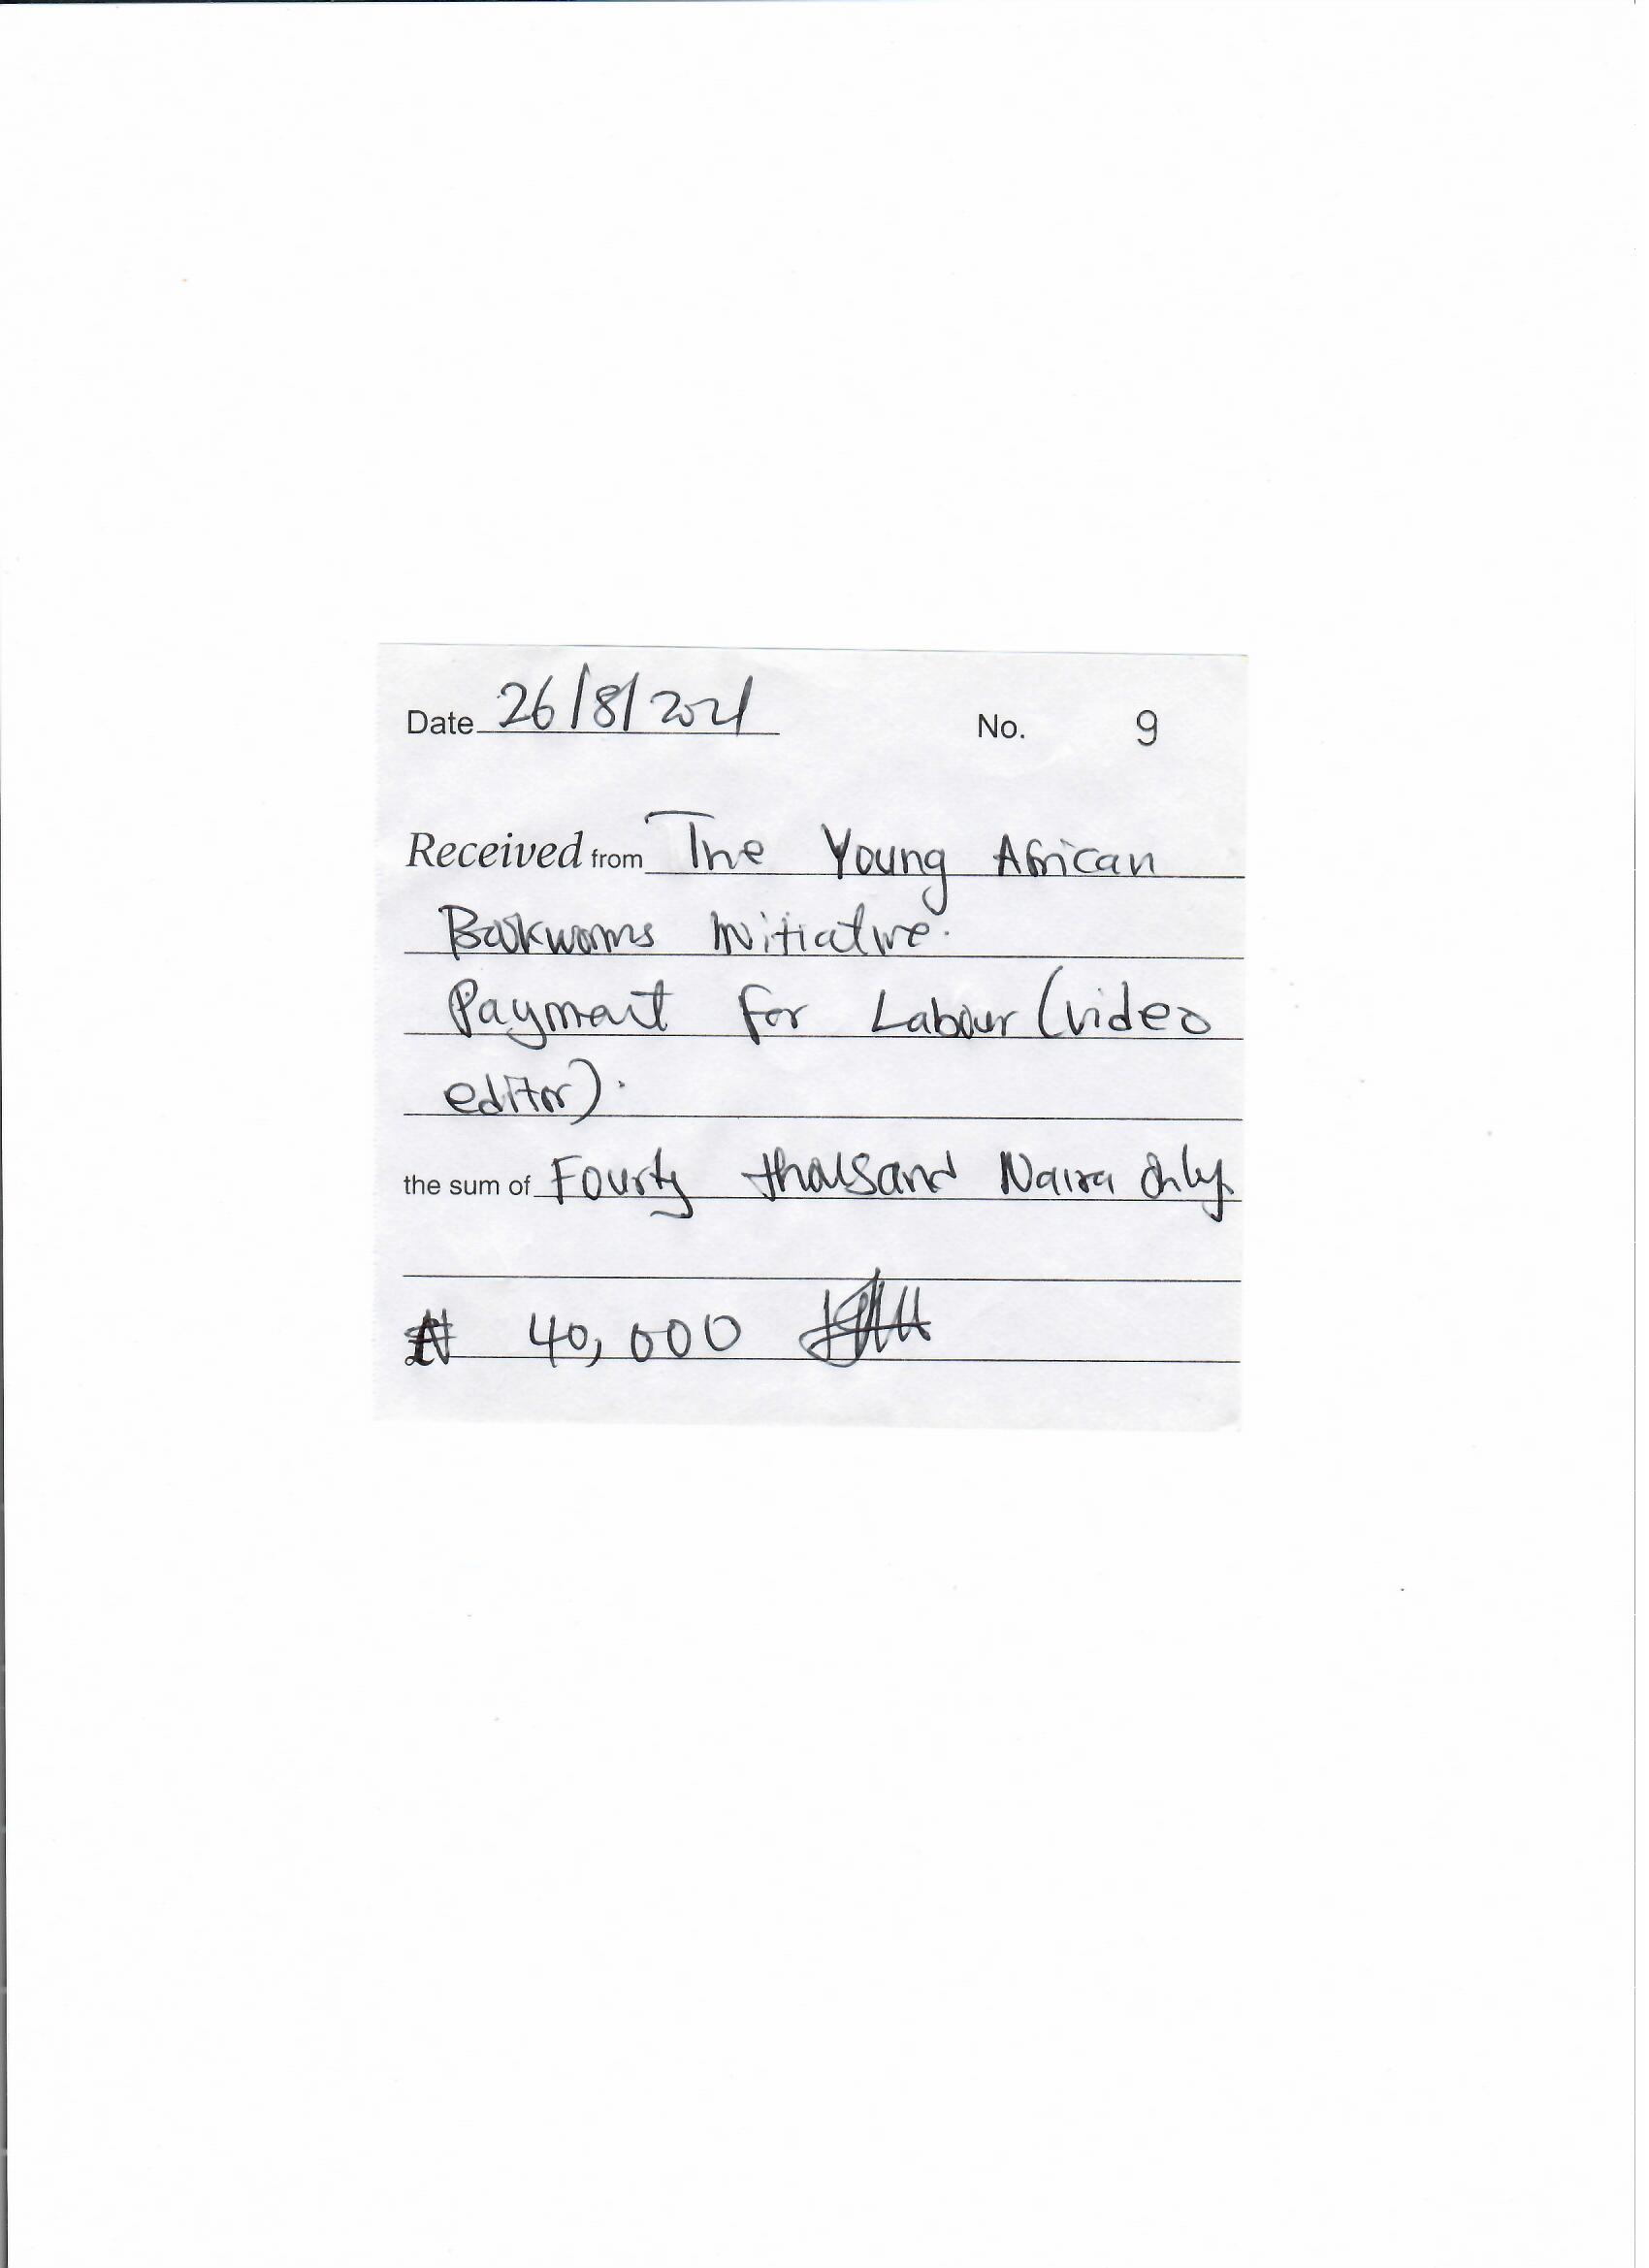 Date 26/8/2021 No. 9
Received from The Young African
Bookworms Initiative.
Payment for Labour (video
editor).
the sum of Fourty thousand Naira Only
₦ 40,000